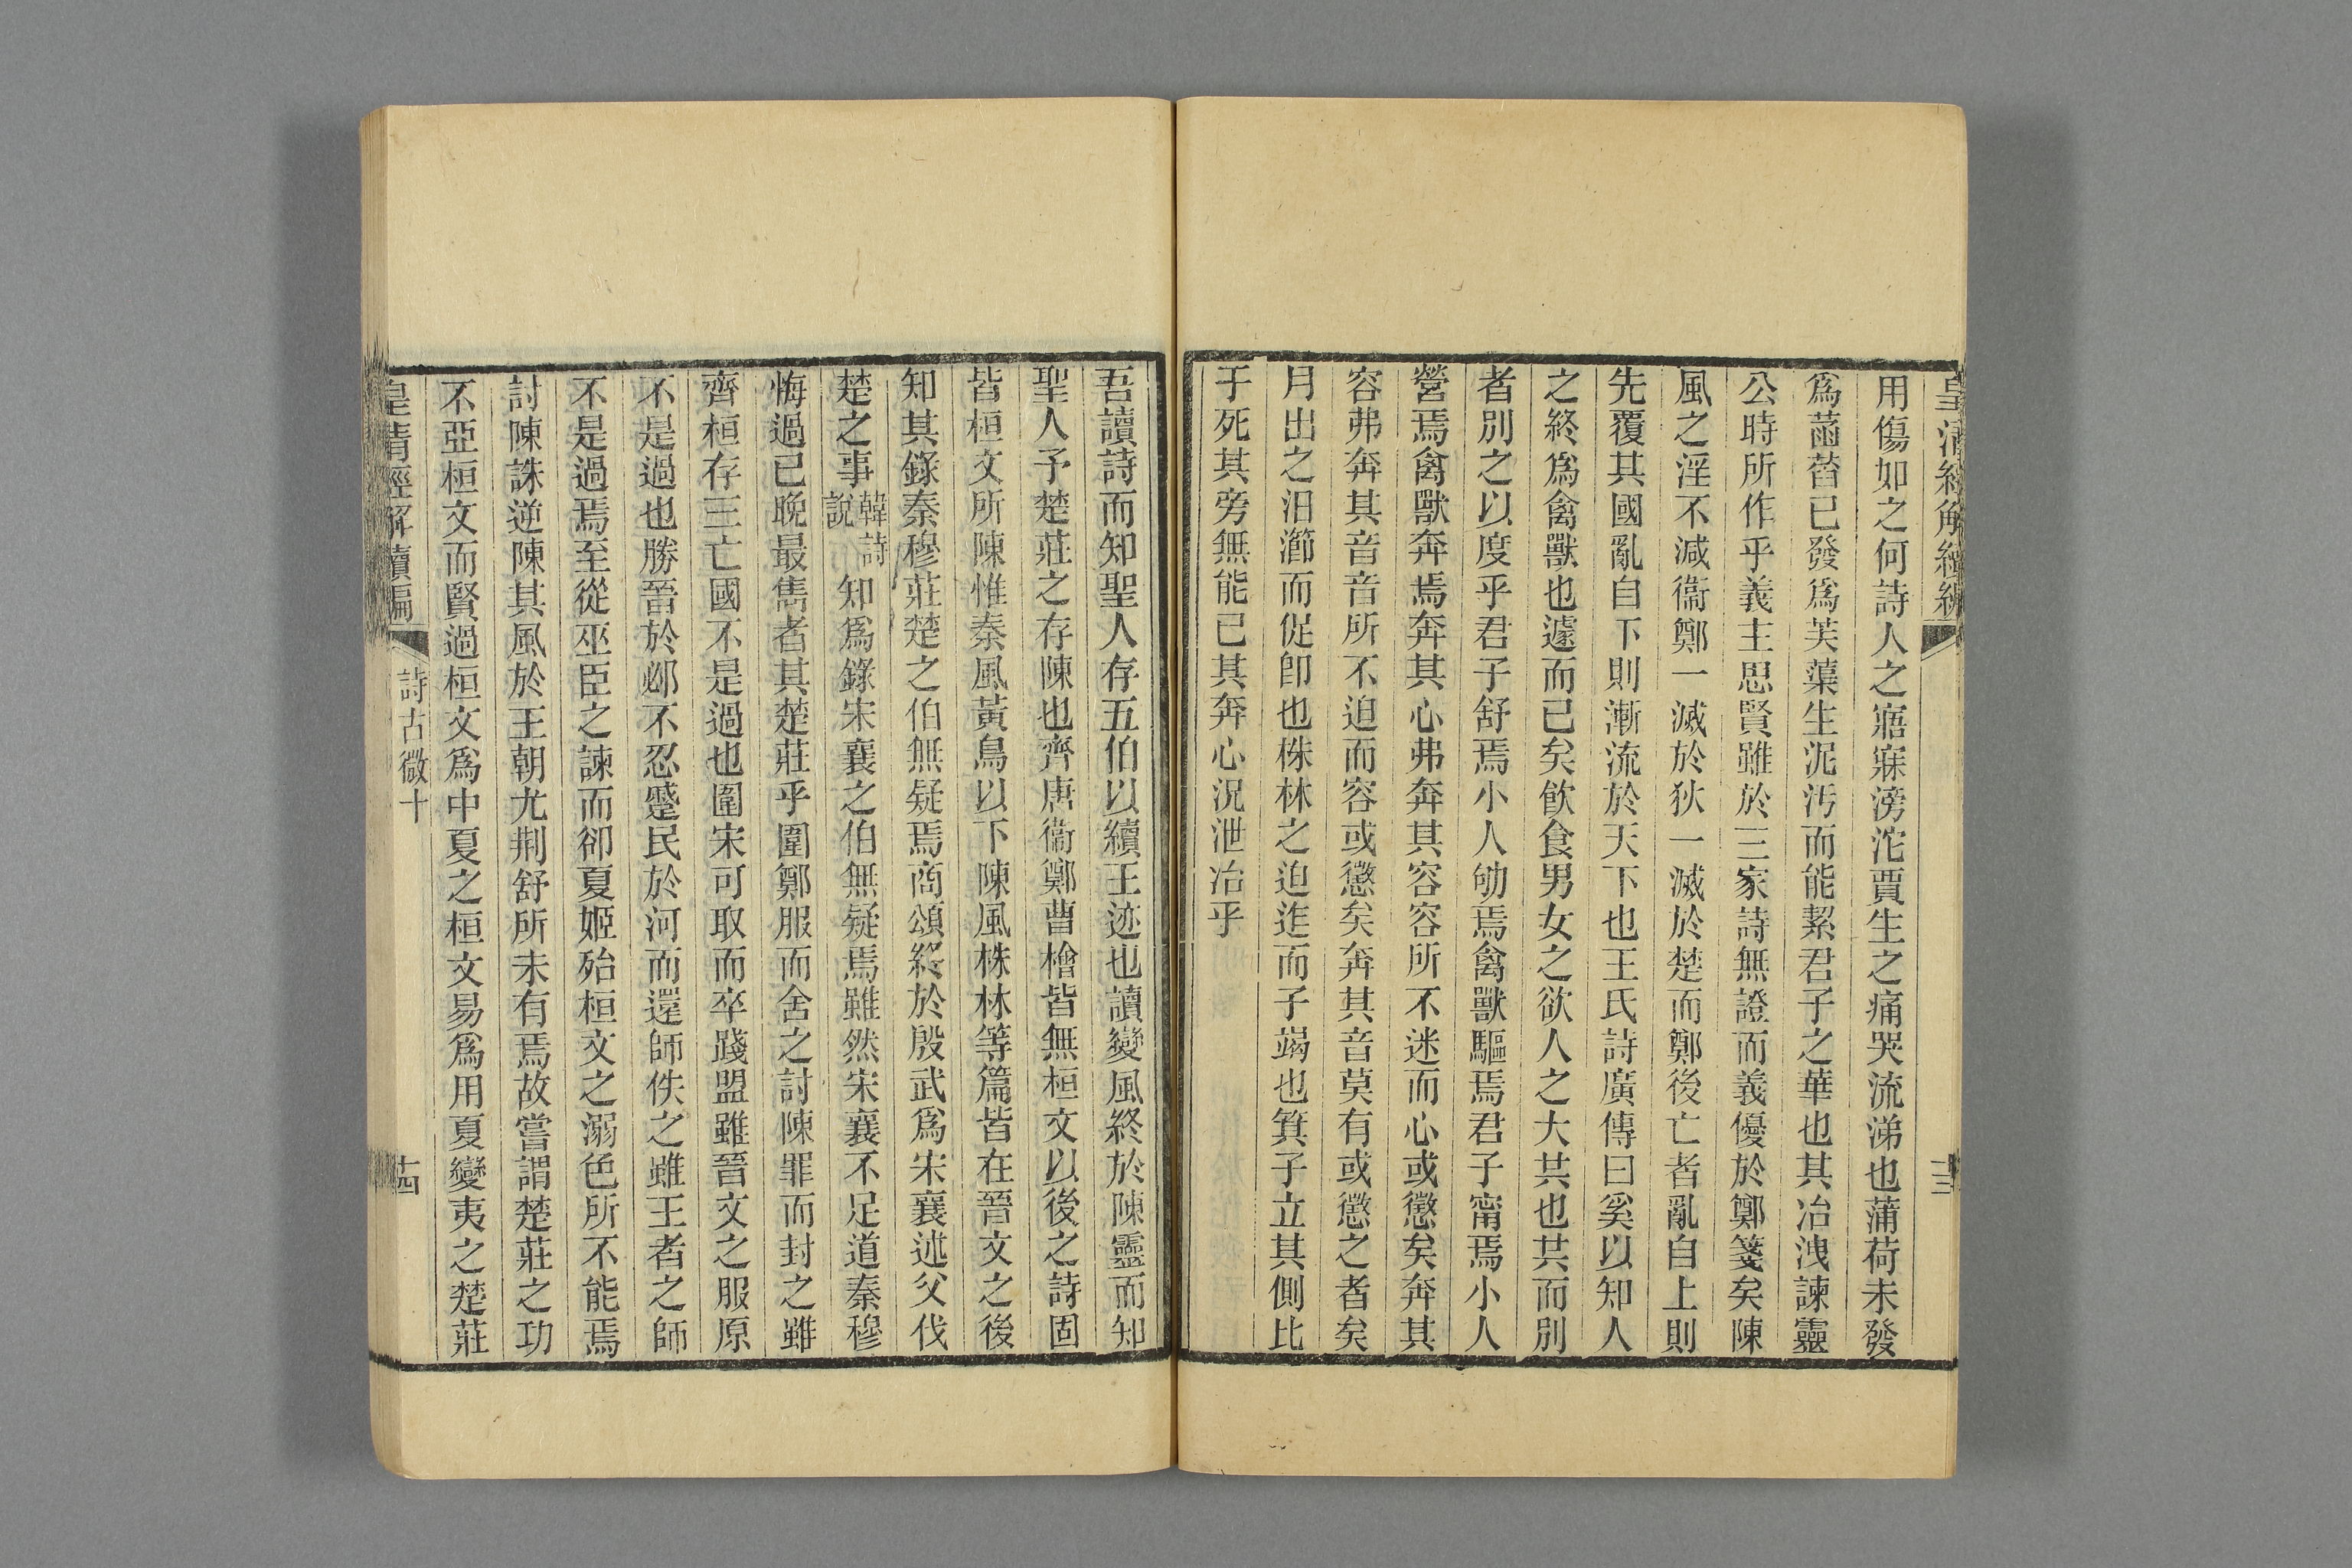 用傷如之何詩人之寤寐滂沱賈生之痛哭流涕也蒲荷未發
爲菡萏已發爲芙蕖生泥汚而能絜君子之華也其冶洩諫靈
公時所作乎義主思賢雖於三家詩無證而義優於鄭箋矣陳
風之淫不減衞鄭一滅於狄一滅於楚而鄭後亡者亂自上則
先覆其國亂自下則漸流於天下也王氏詩廣傳曰奚以知人
之終爲禽獸也遽而已矣飮食男女之欲人之大共也共而別
者別之以度乎君子舒焉小人劬焉禽獸驅焉君子甯焉小人
營焉禽獸奔焉奔其心弗奔其容容所不迷而心或懲矣奔其
容弗奔其音音所不迫而容或懲矣奔其音莫有或懲之者矣
月出之汨瀄而促卽也株林之迫迮而子竭也箕子立其側比
干死其旁無能已其奔心況泄冶乎
吾讀詩而知聖人存五伯以續王迹也讀變風終於陳靈而知
聖人予楚莊之存陳也齊唐衞鄭曹檜皆無桓文以後之詩固
皆桓文所陳惟秦風黃鳥以下陳風株林等篇皆在晉文之後
知其錄秦穆莊楚之伯無疑焉商頌終於殷武爲宋襄述父伐
楚之事韓詩說知爲錄宋襄之伯無疑焉雖然宋襄不足道秦穆
悔過已晚最雋者其楚莊乎圍鄭服而舍之討陳罪而封之雖
齊桓存三亡國不是過也圍宋可取而卒踐盟雖晉文之服原
不是過也勝晉於邲不忍蹙民於河而還師佚之雖王者之師
不是過焉至從巫臣之諫而卻夏姬殆桓文之溺色所不能焉
討陳誅逆陳其風於王朝尤荆舒所未有焉故嘗謂楚莊之功
不亞桓文而賢過桓文爲中夏之桓文易爲用夏變夷之楚莊
皇清經解續編
詩古微十
十四